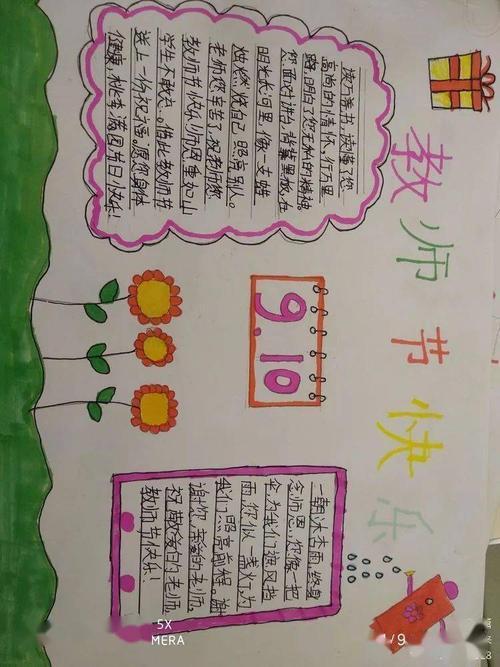 教师节快乐
读万卷书,读懂了您
高尚的情怀,行万里
路,明白了您无私的精神。
您面对讲台,背靠黑板,在
光长河里,像一支蜡
烛,燃烧自己,照亮别人。
老师,您辛苦了,祝老师您
教师节快乐!师恩重如山
学生不敢忘。借此教师节
送上一份祝福。愿您身体
健康,桃李满园,节日快乐!
9.10
一朝沐杏雨,终身
念师恩,您像一把
伞,为我们遮风挡
雨,您似一盏灯,为
我们照亮前程。谢
谢您,亲爱的老师。
祝敬爱的老师,
教师节快乐!
5X
MERA
1/9